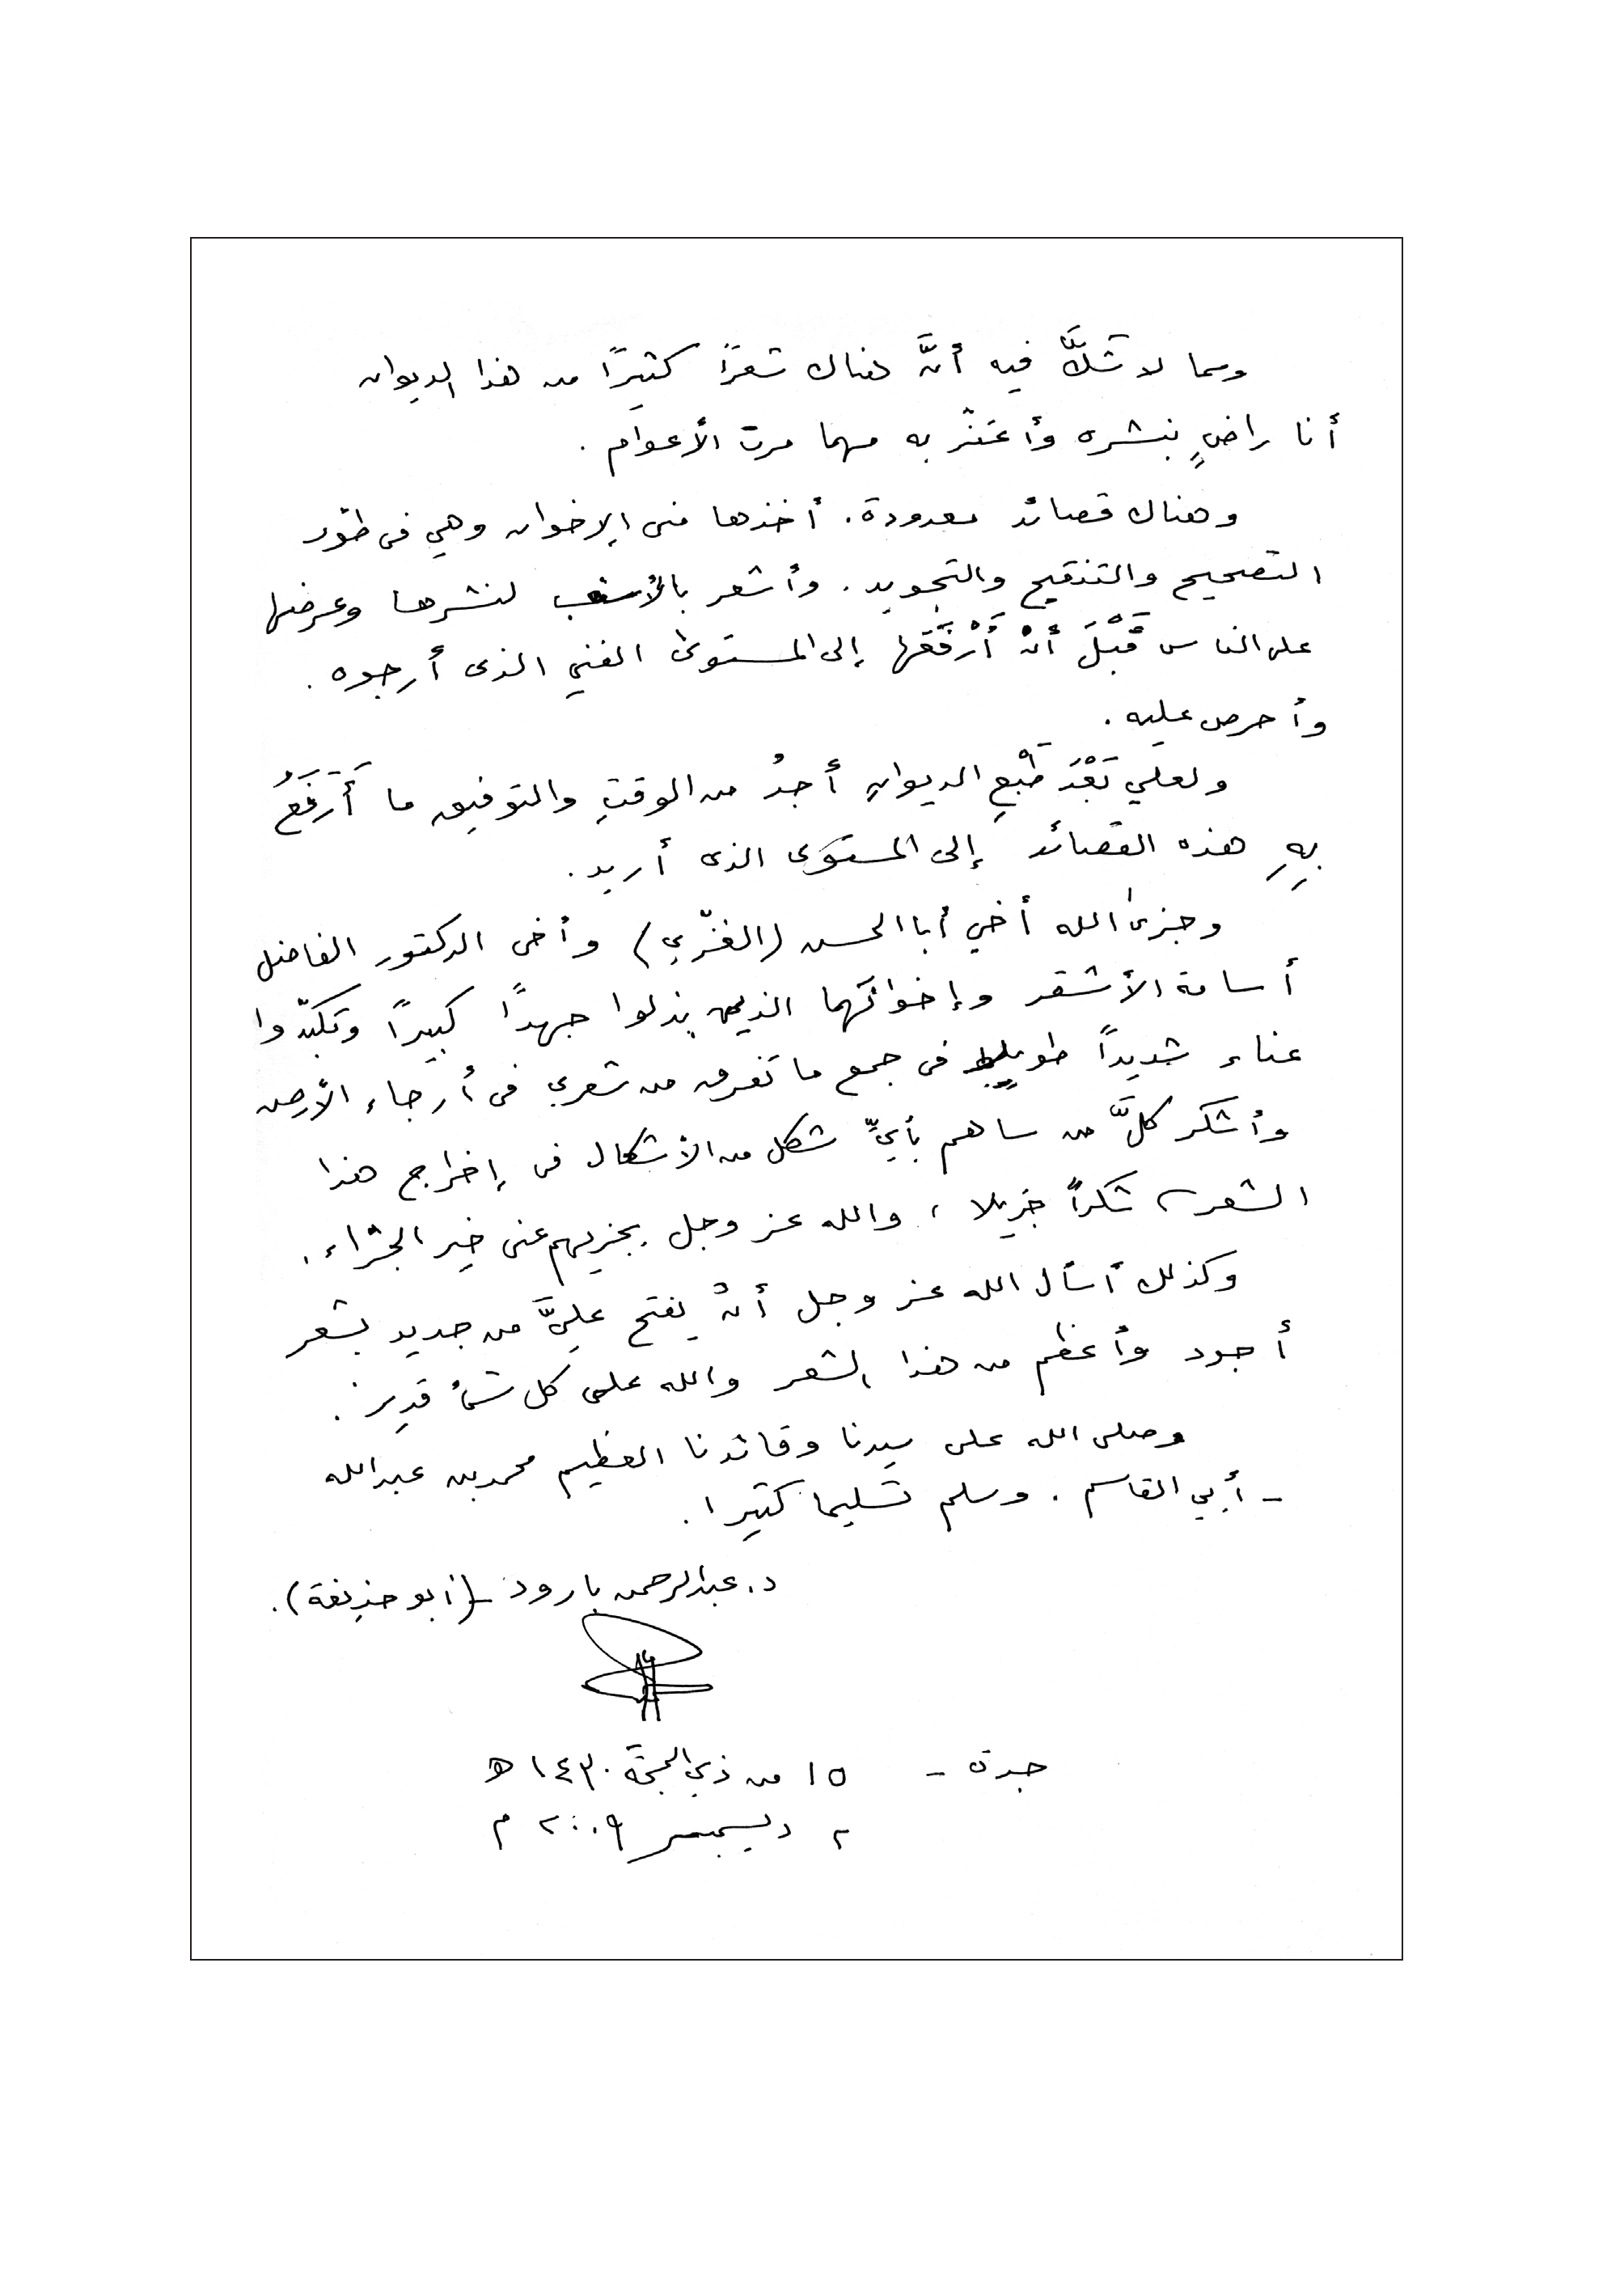 ومما لا شَكَّ فيه أنَّ هناك شعرًا كثيرًا من هذا الديوان
أنا راضٍ بنشره وأعتز به مهما مرت الأعوام .
وهناك قصائد معدودة . أخذها منى الإخوان وهي فى طَوْر
التصحيح والتنقيح والتجويد . وأشعر بالأسف لنشرها وعرضها
على الناس قَبْلَ أنْ أَرْفَعَها إلى المستوىٰ الفني الذى أرجوه .
وأحرص عليه .
ولعلي بَعْدَ طَبْعِ الديوانِ أجدُ من الوقتِ والتوفيق ما أَرفَعُ
بِهِ هذه القصائد إلى المستوى الذى أريد .
وجزىٰ الله أخي أبا الحسن (الغزّي) وأخى الدكتور الفاضل
أسامة الأشقر وإخوانَهما الذين بذلوا جهدًا كبيرًا وتكبّدوا
عناء شديدًا طويلا فى جمع ما تفرق من شعري فى أرجاء الأرض
وأشكر كلَّ من ساهم بأيِّ شكل من الأشكال فى إخراج هذا
الشعر شكرًا جزيلا ، والله عز وجل يجزيهم عنى خير الجزاء .
وكذلك أسأل الله عز وجل أنْ يفتح عليَّ من جديد بشعر
أجود وأعظم من هذا الشعر والله على كل شىء قدير .
وصلى الله على سيدنا وقائدنا العظيم محمد بن عبدالله
- أبي القاسم . وسلم تسليما كثيرا .
د. عبدالرحمن بارود - (أبو حذيفة) .
جدة - ١٥ من ذي الحجة ١٤٣٠ هـ
٢ ديسمبر ٢٠٠٩ م